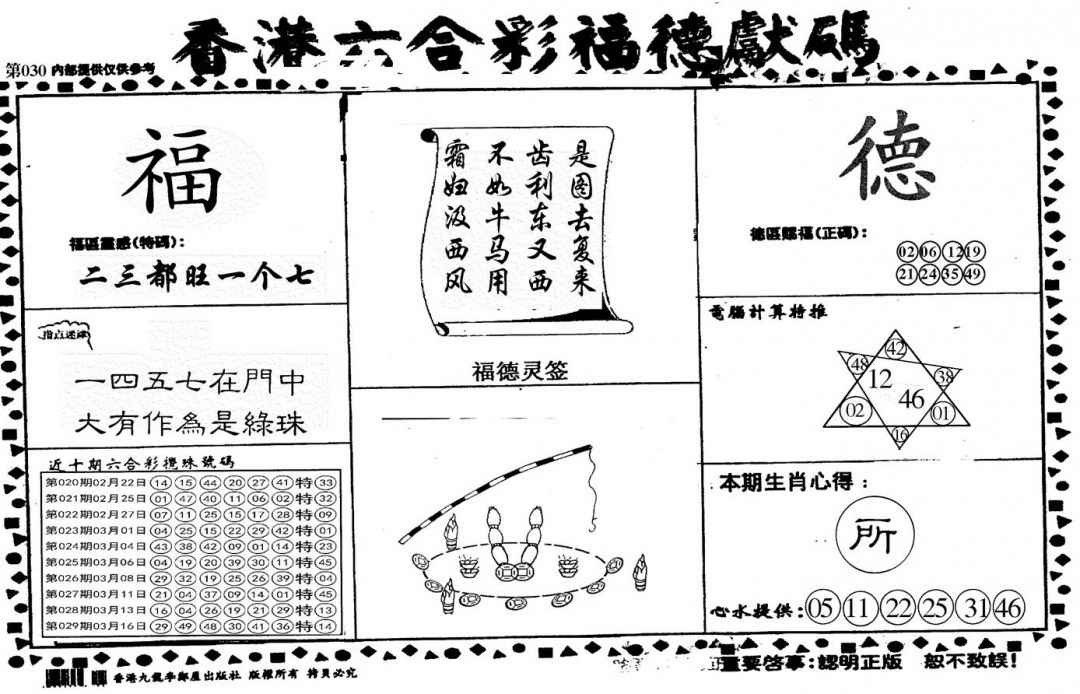 香港六合彩福德獻碼
第030 内部提供仅供参考
福
福區靈感(特碼):
二三都旺一个七
指点迷津
一四五七在門中
大有作為是綠珠
近十期六合彩攪珠號碼
第020期02月22日 14 15 44 20 27 41 特 33
第021期02月25日 01 47 40 11 06 02 特 32
第022期02月27日 07 11 25 15 17 28 特 09
第023期03月01日 04 25 15 22 29 42 特 01
第024期03月04日 43 38 42 09 01 14 特 23
第025期03月06日 04 19 20 39 30 11 特 45
第026期03月08日 29 32 19 25 26 39 特 04
第027期03月11日 21 04 37 09 14 01 特 45
第028期03月13日 16 04 26 19 21 29 特 13
第029期03月16日 29 49 48 30 41 36 特 14
是图去复来
齿利东又西
不如牛马用
霜妇汲西风
福德灵签
德
德區賜福(正碼):
02 06 12 19
21 24 35 49
電腦計算特推
42
48 38
12 46
02 01
16
本期生肖心得:
所
心水提供: 05 11 22 25 31 46
香港九龍李鄭屋出版社 版權所有 拷貝必究
重要啓事:認明正版 恕不致誤!